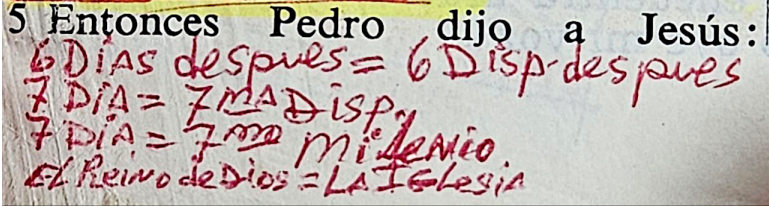 5 Entonces Pedro dijo a Jesús:
6 DíAs despues = 6 Disp. despues
7 DíA = 7MA Disp.
7 DíA = 7mo milenio
El Reino de Dios = LA IGlesiA